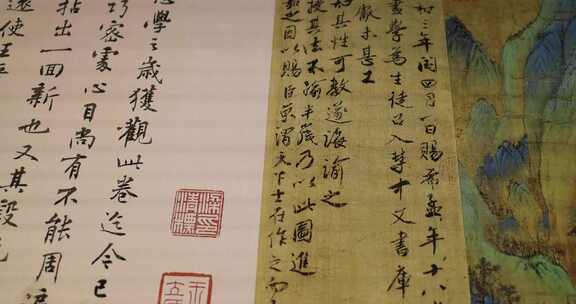 和三年閏四月一日賜希孟年十八
畫學為生徒召入禁中文書庫
獻未甚工
知其性可教遂誨諭之
授其法不踰半歲乃以此圖進
嘉之因以賜臣京謂天下士在作之而
志學之歲獲觀此卷迄今已
巧密處心目尚有不能周
拈出一回新也又其設色
遠使王